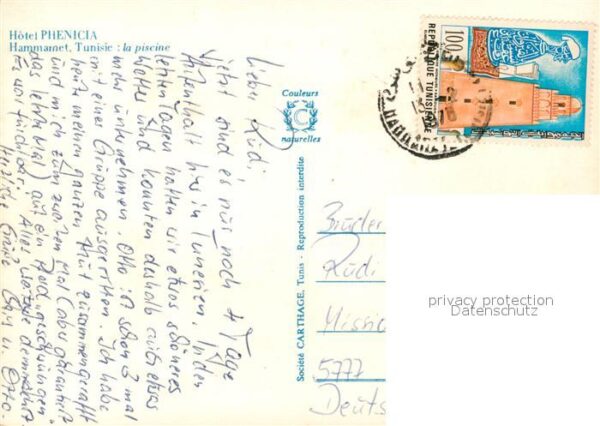 Hôtel PHENICIA
Hammamet, Tunisie : la piscine
Couleurs
naturelles
Société CARTHAGE, Tunis - Reproduction interdite
REPUBLIQUE TUNISIENNE
100
HAMMAMET
Lieber Rüdi,
jetzt sind es nur noch 4 Tage
Aufenthalt hier in Tunesien. In den
letzten Tagen hatten wir etwas schöneres
Wetter und konnten deshalb auch etwas
mehr unternehmen. Otto ist schon 3 mal
mit einer Gruppe ausgeritten. Ich habe
heute meinen ganzen Mut zusammengerafft
und mich zum zweiten Mal (aber garantiert
das letzte Mal) auf ein Pferd geschwungen.
Es war furchtbar. Alles weitere demnächst.
Herzliche Grüße
Otto.
Brüder
Rüdi
Missio
5777
Deuts
privacy protection
Datenschutz